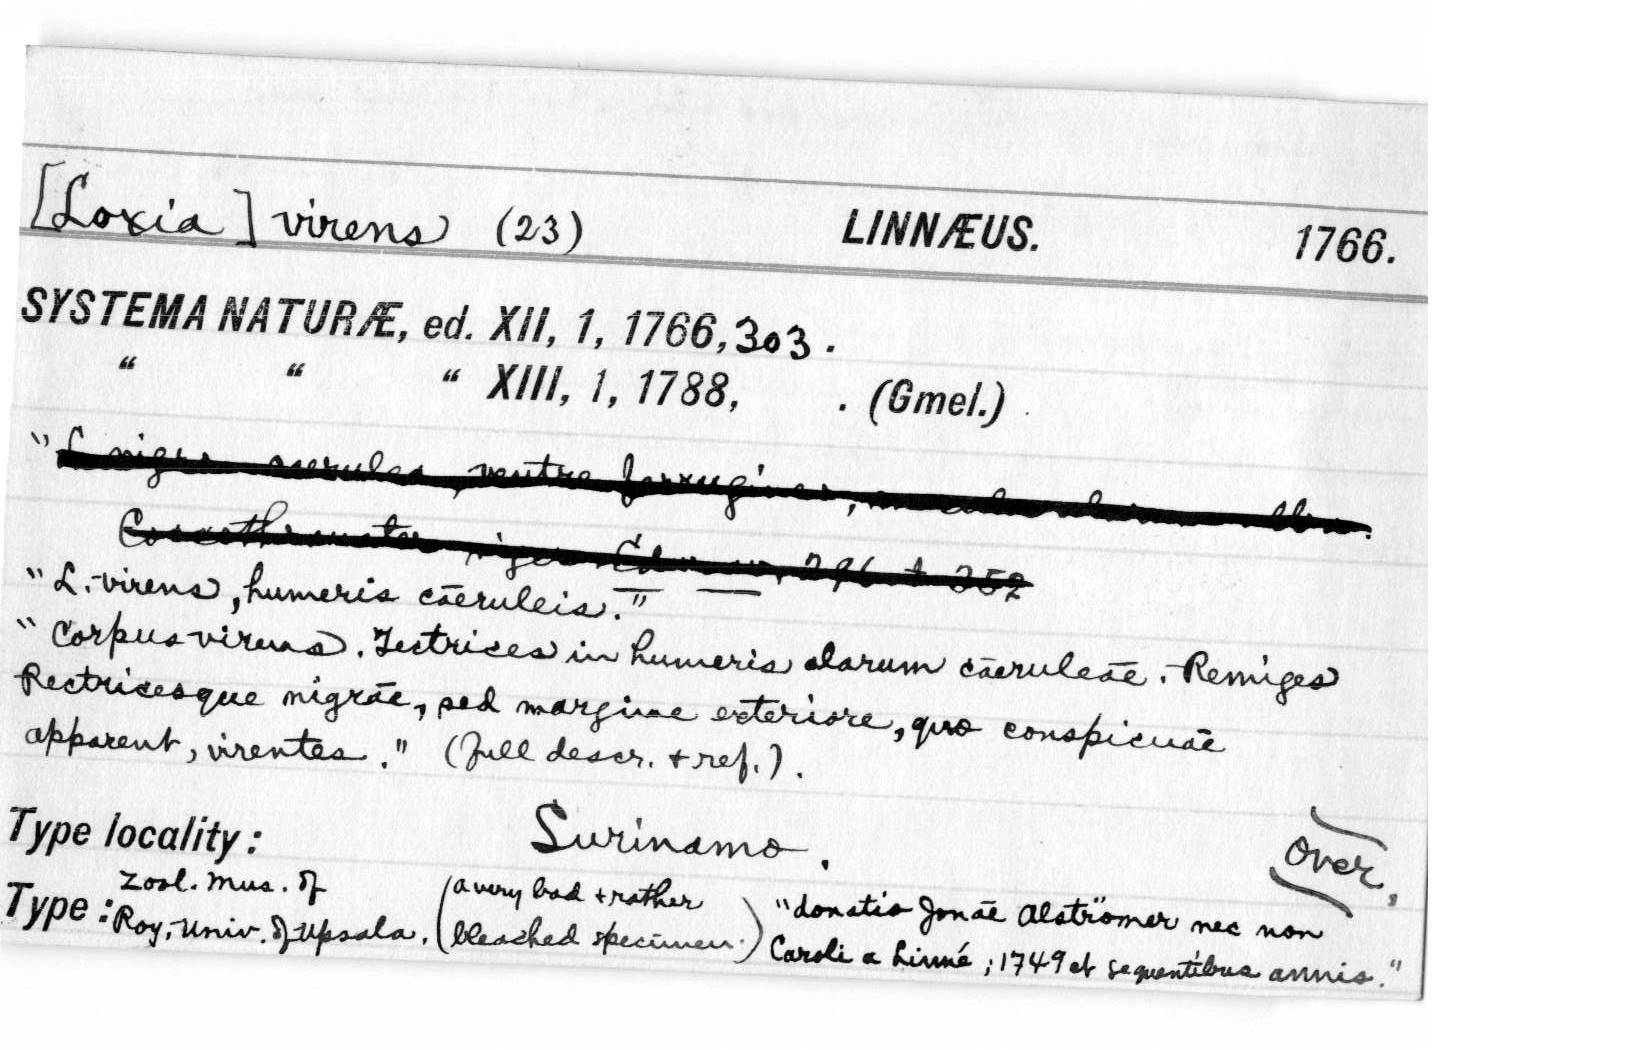 [Loxia] virens (23) LINNÆUS. 1766.
SYSTEMA NATURÆ, ed. XII, 1, 1766, 303.
“ “ “ XIII, 1, 1788, . (Gmel.)
"L. nigro-caerulea, ventre ferrugineo,
Coccothraustes niger 352
"L. virens, humeris cāeruleis."
"Corpus virens. Tectrices in humeris alarum cāeruleāe. Remiges
Rectricesque nigrāe, sed margine exteriore, quo conspicuāe
apparent, virentes." (full descr. + ref.).
Type locality: Surinamo.
Over.
Type: Zool. Mus. of
Roy. Univ. of Upsala. (a very bad + rather
bleached specimen.) "donatio Jonāe Alströmer nec non
Caroli a Linné; 1749 et sequentibus annis."